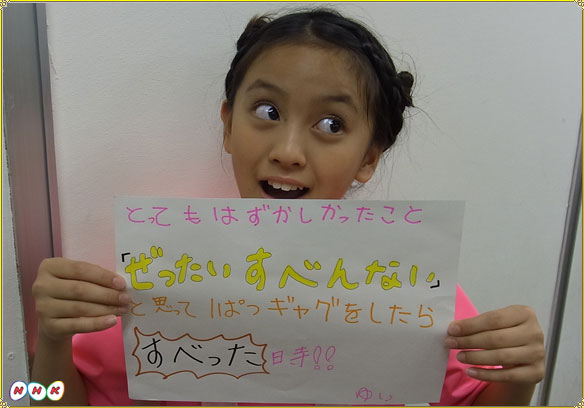 とってもはずかしかったこと
「ぜったいすべんない」
と思って1ぱつギャグをしたら
すべった時!!
ゆい
NHK